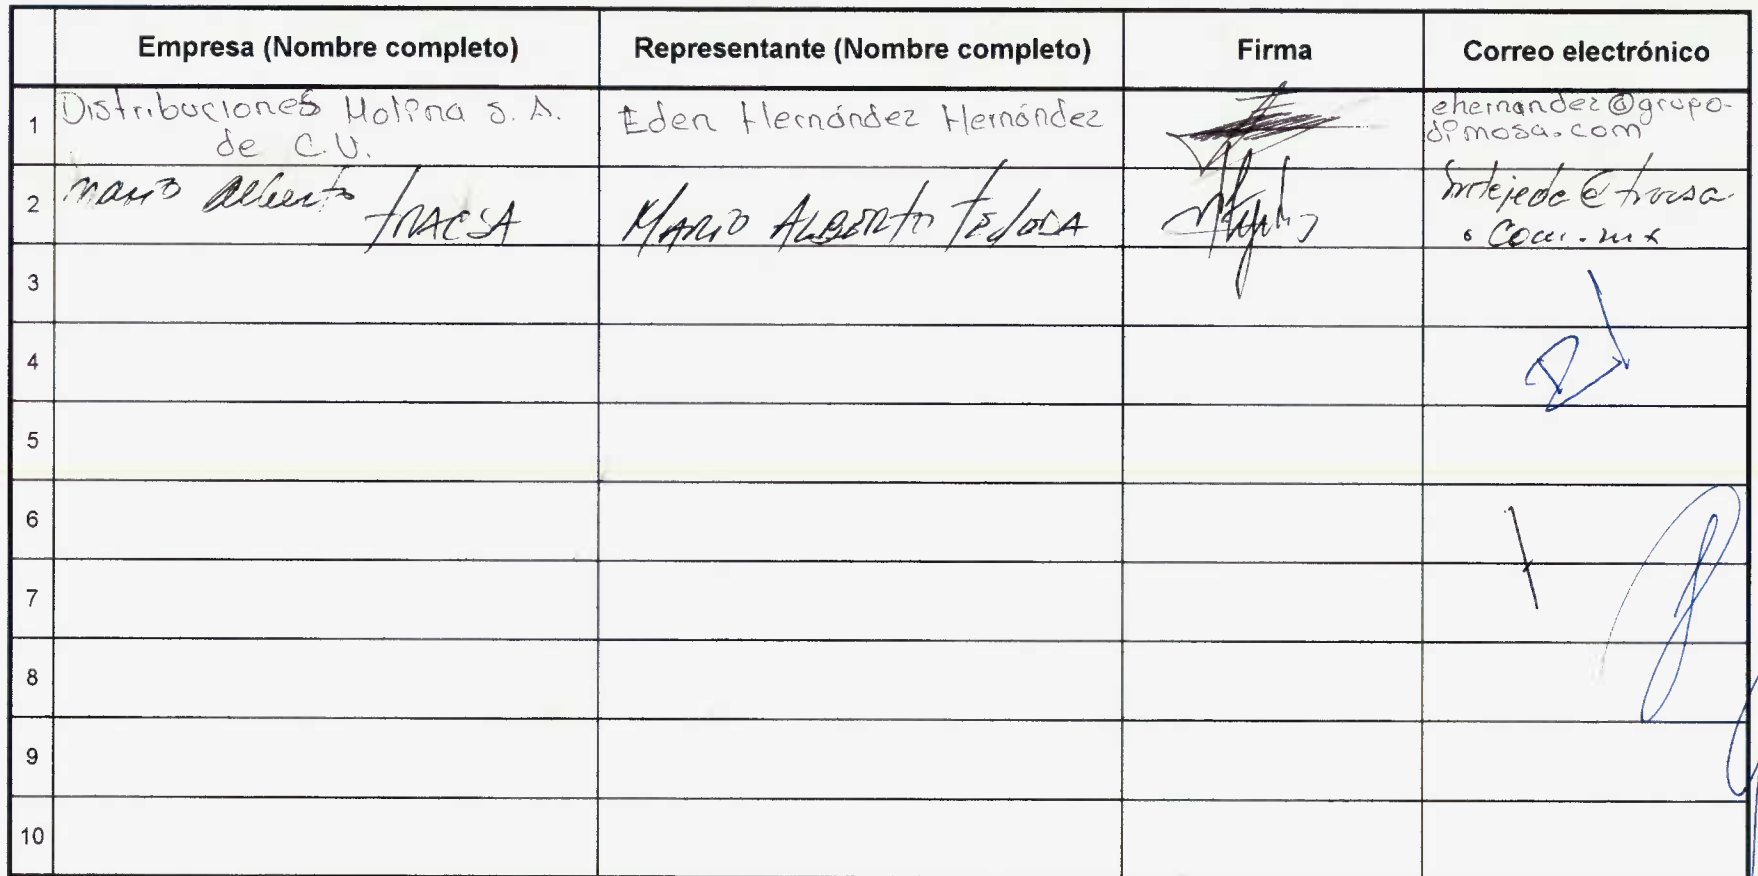 Empresa (Nombre completo) Representante (Nombre completo) Firma Correo electrónico
1 Distribuciones Molina S. A. de C.V. Eden Hernández Hernández ehernandez@grupo-dimosa.com
2 Mario Alberto TRACSA MARIO ALBERTO TEJEDA
.com.mx
3
4
5
6
7
8
9
10